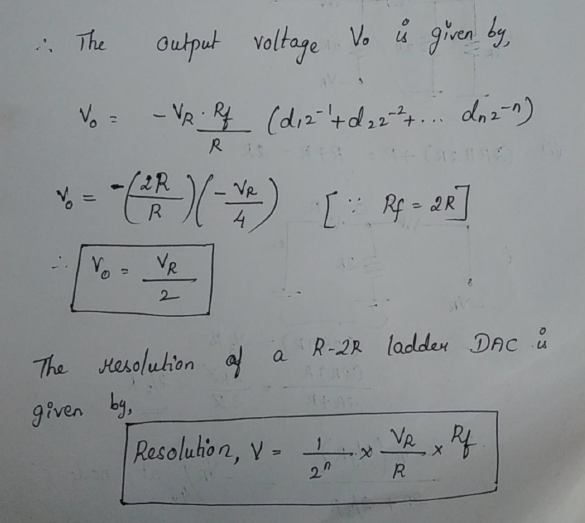 ∴ The output voltage Vo is given by,
Vo = -VR · Rf / R (d₁2⁻¹ + d₂2⁻² + ... dn2⁻ⁿ)
Vo = -(2R / R)(-VR / 4) [∵ Rf = 2R]
∴ Vo = VR / 2
The resolution of a R-2R ladder DAC is
given by,
Resolution, V = 1 / 2ⁿ × VR / R × Rf